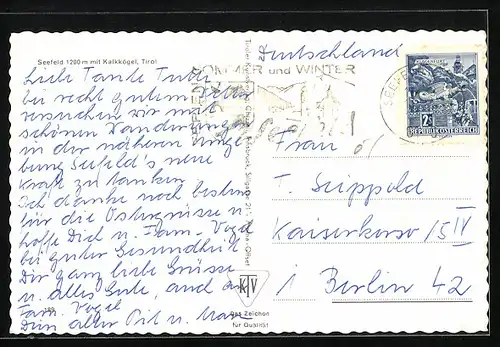 Seefeld 1200 m mit Kalkkögel, Tirol
Liebe Tante Tutti,
bei recht gutem Wetter
versuchen wir mit
schönen Wanderungen
in der näheren Umge-
bung Seefeld's neue
Kraft zu tanken
Ich danke noch bestens
für die Ostergrüsse u.
hoffe Dich u. Fam. Vogel
bei guter Gesundheit
Dir ganz liebe Grüsse
u. alles Gute, auch an
Fam. Vogel
Dein alter Pit u.
SOMMER und WINTER
Deutschland
REPUBLIK ÖSTERREICH
Frau
T. Seippold
Kaiserkorso 151 IV
1 Berlin 42
KTV
Das Zeichen
für Qualität